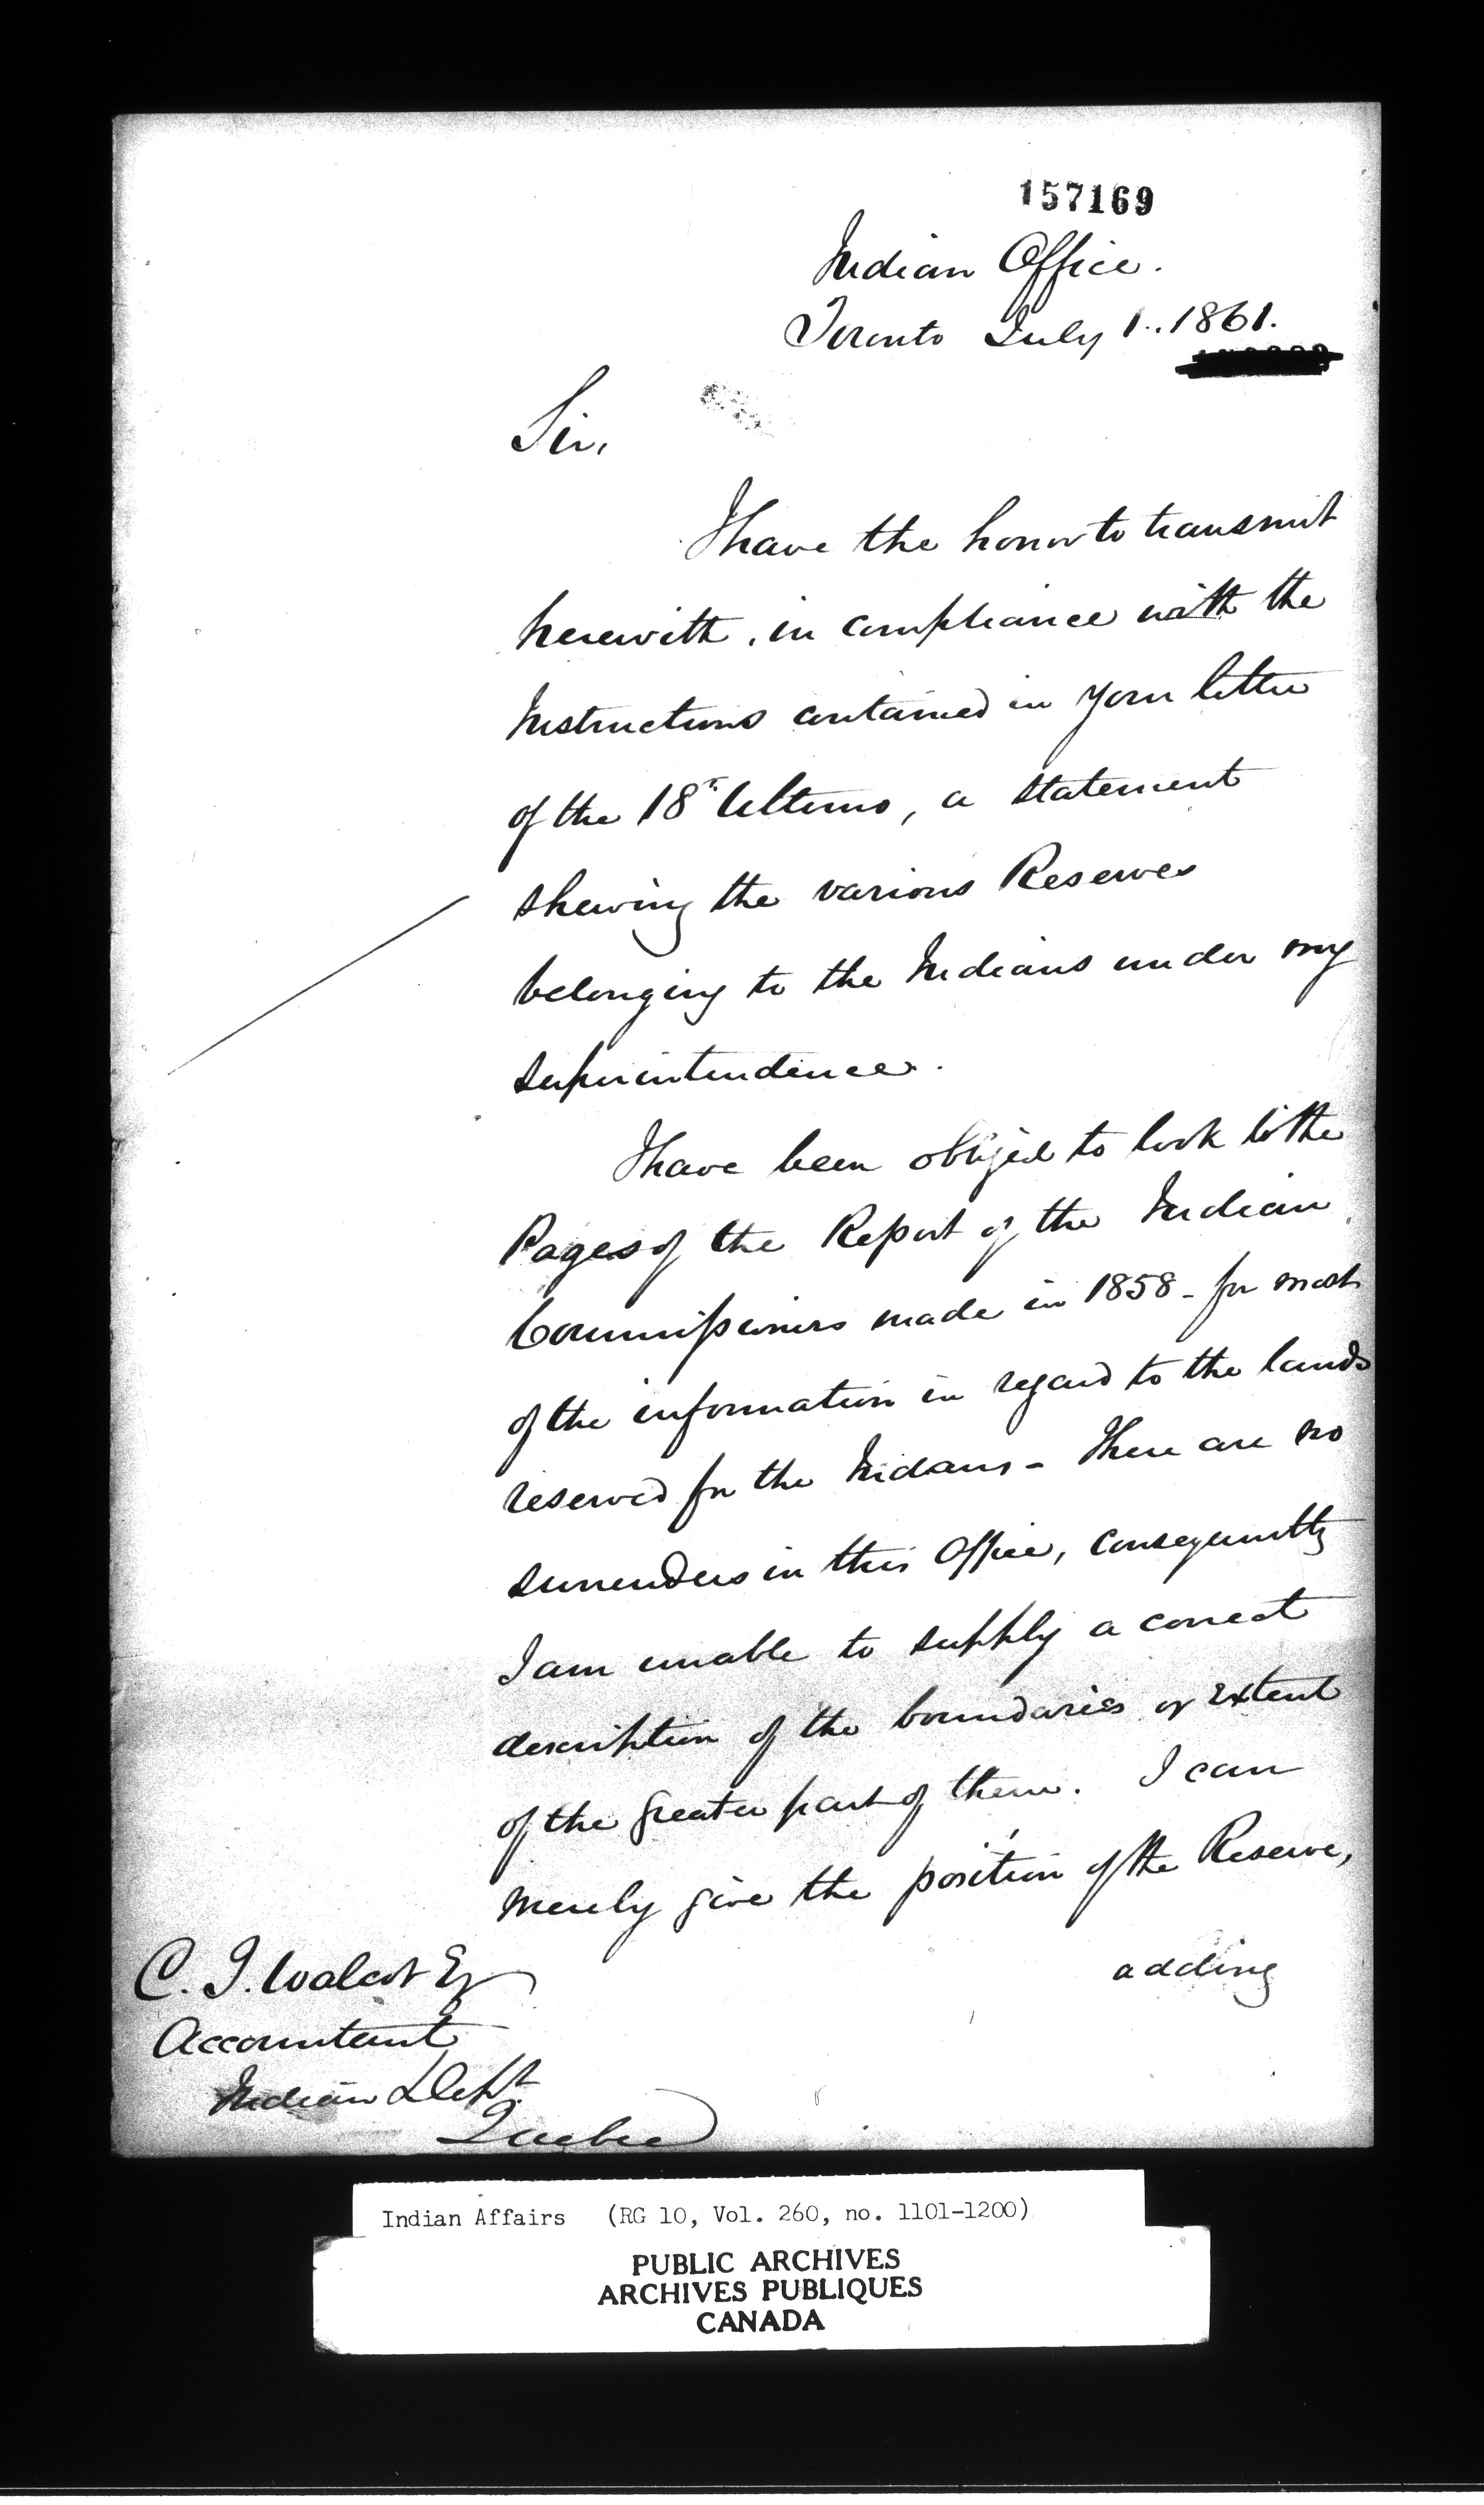 157169
Indian Office.
Toronto July 1.. 1861.
Sir,
I have the honor to transmit
herewith, in compliance with the
Instructions contained in your letter
of the 18th Ultimo, a statement
shewing the various Reserves
belonging to the Indians under my
superintendence.
I have been obliged to look to the
Pages of the Report of the Indian
Commissioners made in 1858 - for most
of the information in regard to the lands
reserved for the Indians - There are no
surrenders in this Office, consequently
I am unable to supply a correct
description of the boundaries or extent
of the greater part of them. I can
merely give the position of the Reserve,
adding
C. T. Walcot Esq
Accountant
Indian Dept.
Quebec
Indian Affairs (RG 10, Vol. 260, no. 1101-1200)
PUBLIC ARCHIVES
ARCHIVES PUBLIQUES
CANADA